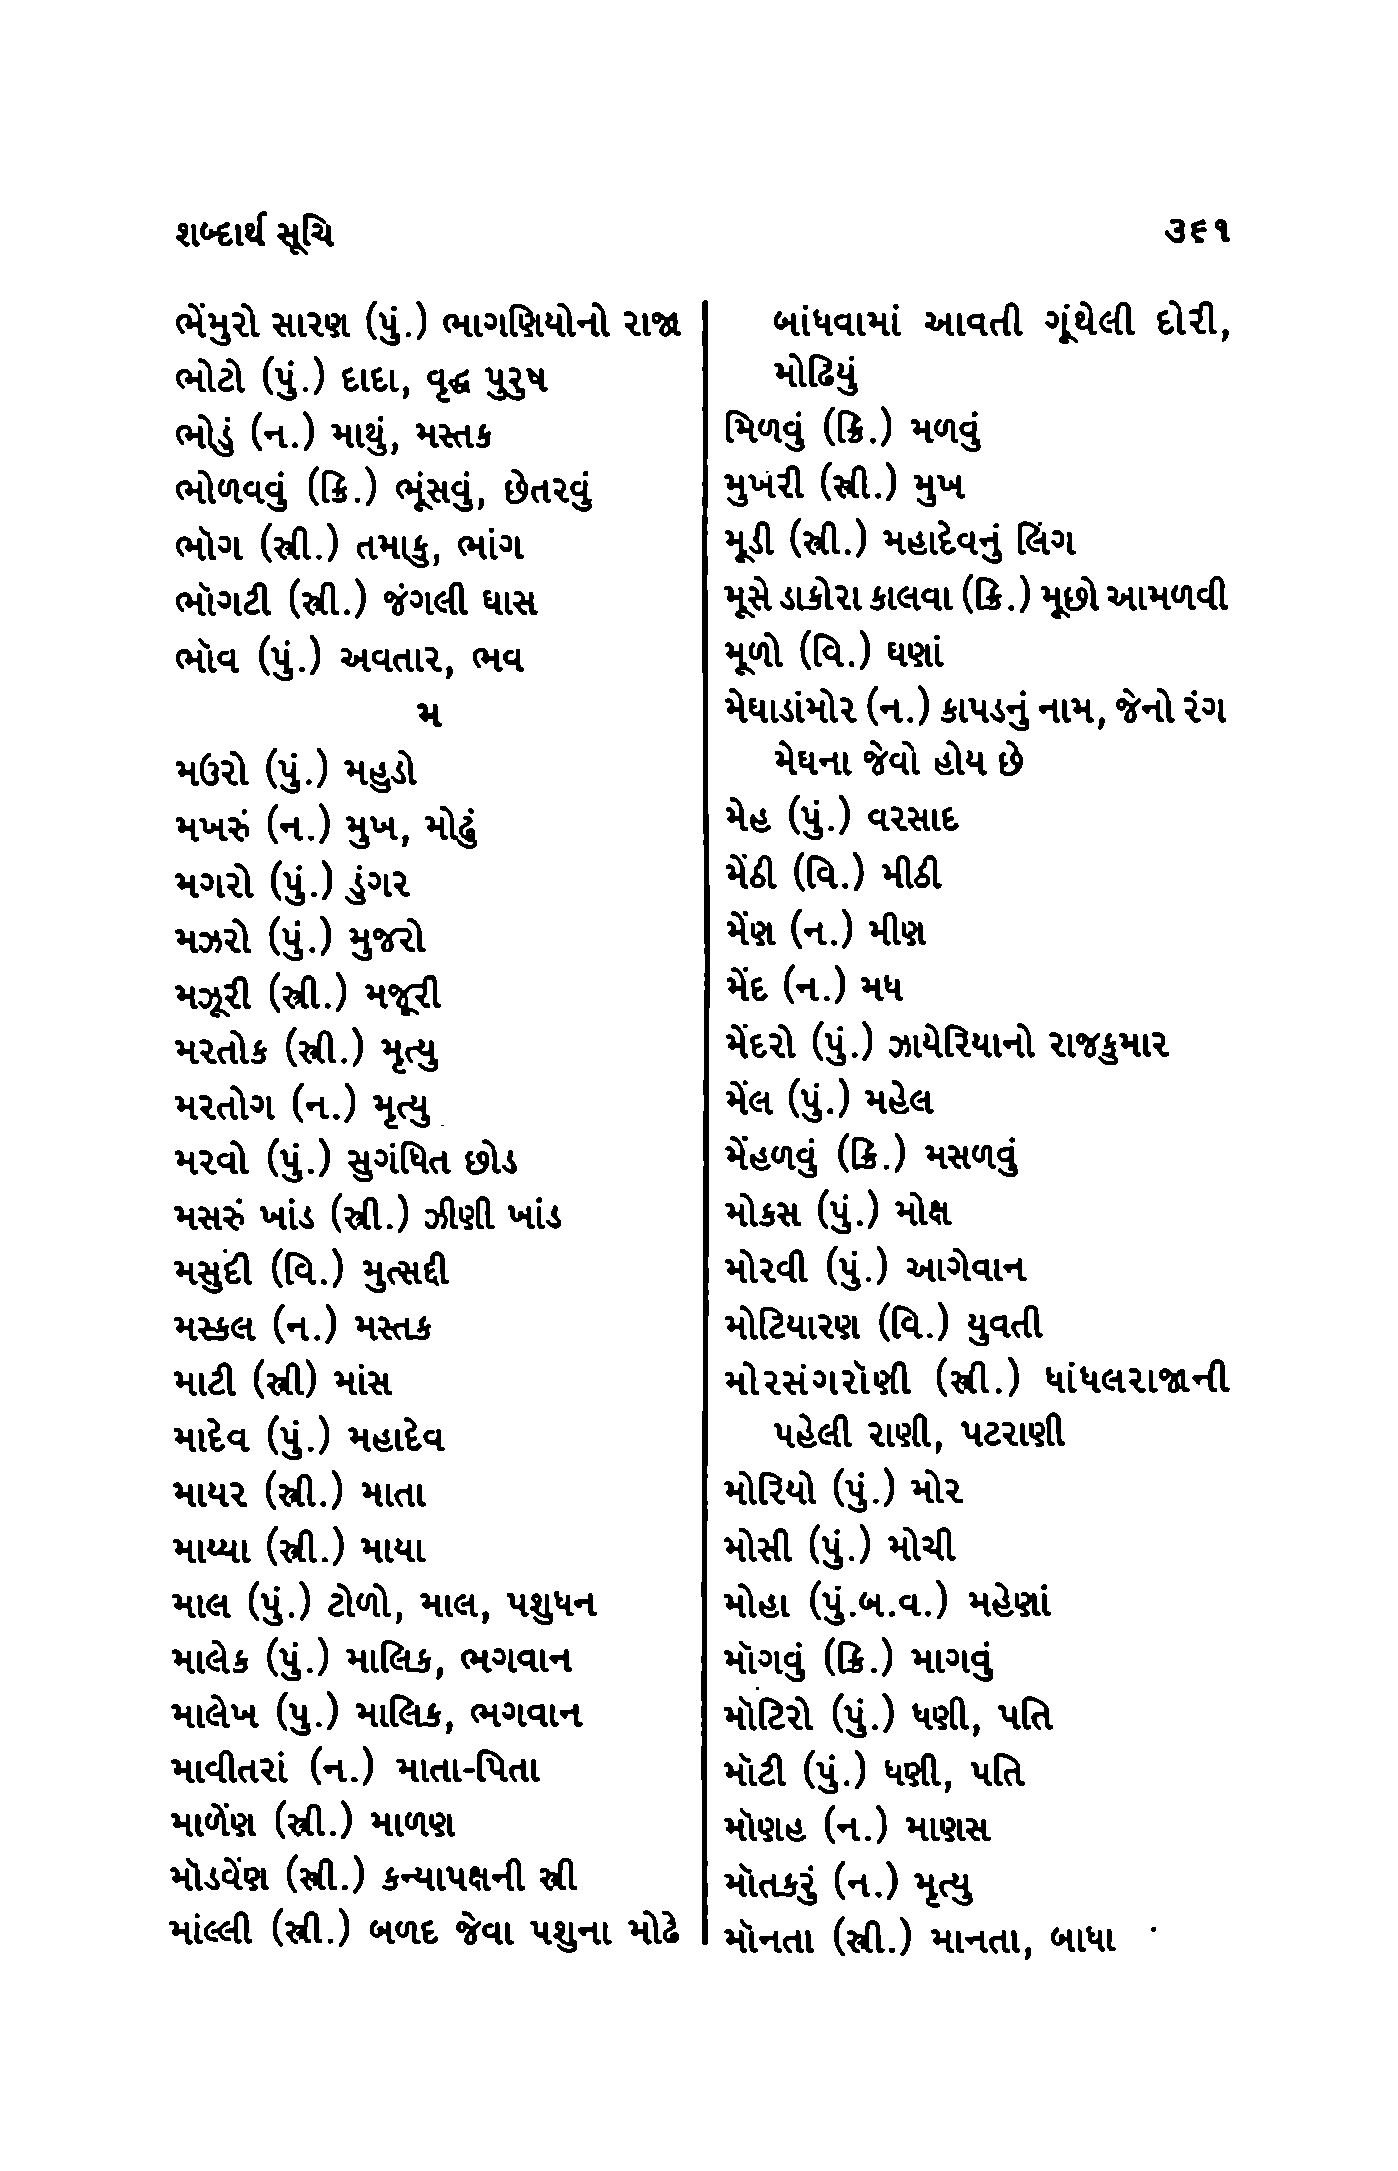 શબ્દાર્થ સૂચિ
૩૬૧
ભેંમુરો સારણ (પું.) ભાગણિયોનો રાજા
ભોટો (પું.) દાદા, વૃદ્ધ પુરુષ
ભોડું (ન.) માથું, મસ્તક
ભોળવવું (ક્રિ.) ભૂંસવું, છેતરવું
ભૉગ (સ્ત્રી.) તમાકુ, ભાંગ
ભૉગટી (સ્ત્રી.) જંગલી ઘાસ
ભૉવ (પું.) અવતાર, ભવ
મ
મઉરો (પું.) મહુડો
મખરું (ન.) મુખ, મોઢું
મગરો (પું.) ડુંગર
મઝરો (પું.) મુજરો
મઝૂરી (સ્ત્રી.) મજૂરી
મરતોક (સ્ત્રી.) મૃત્યુ
મરતોગ (ન.) મૃત્યુ
મરવો (પું.) સુગંધિત છોડ
મસરું ખાંડ (સ્ત્રી.) ઝીણી ખાંડ
મસુંદી (વિ.) મુત્સદ્દી
મસ્કલ (ન.) મસ્તક
માટી (સ્ત્રી) માંસ
માદેવ (પું.) મહાદેવ
માયર (સ્ત્રી.) માતા
માય્યા (સ્ત્રી.) માયા
માલ (પું.) ટોળો, માલ, પશુધન
માલેક (પું.) માલિક, ભગવાન
માલેખ (પુ.) માલિક, ભગવાન
માવીતરાં (ન.) માતા-પિતા
માળેંણ (સ્ત્રી.) માળણ
મૉડવેંણ (સ્ત્રી.) કન્યાપક્ષની સ્ત્રી
માંલ્લી (સ્ત્રી.) બળદ જેવા પશુના મોઢે
બાંધવામાં આવતી ગૂંથેલી દોરી,
મોઢિયું
મિળવું (ક્રિ.) મળવું
મુખરી (સ્ત્રી.) મુખ
મૂડી (સ્ત્રી.) મહાદેવનું લિંગ
મૂસે ડાકોરા કાલવા (ક્રિ.) મૂછો આમળવી
મૂળો (વિ.) ઘણાં
મેઘાડાંમોર (ન.) કાપડનું નામ, જેનો રંગ
મેઘના જેવો હોય છે
મેહ (પું.) વરસાદ
મેંઠી (વિ.) મીઠી
મેંણ (ન.) મીણ
મેંદ (ન.) મધ
મેંદરો (પું.) ઝાયેરિયાનો રાજકુમાર
મેંલ (પું.) મહેલ
મેંહળવું (ક્રિ.) મસળવું
મોકસ (પું.) મોક્ષ
મોરવી (પું.) આગેવાન
મોટિયારણ (વિ.) યુવતી
મોરસંગરૉણી (સ્ત્રી.) ધાંધલરાજાની
પહેલી રાણી, પટરાણી
મોરિયો (પું.) મોર
મોસી (પું.) મોચી
મોહા (પું.બ.વ.) મહેણાં
મૉગવું (ક્રિ.) માગવું
મૉટિરો (પું.) ધણી, પતિ
મૉટી (પું.) ધણી, પતિ
મૉણહ (ન.) માણસ
મૉતકરું (ન.) મૃત્યુ
મૉનતા (સ્ત્રી.) માનતા, બાધા